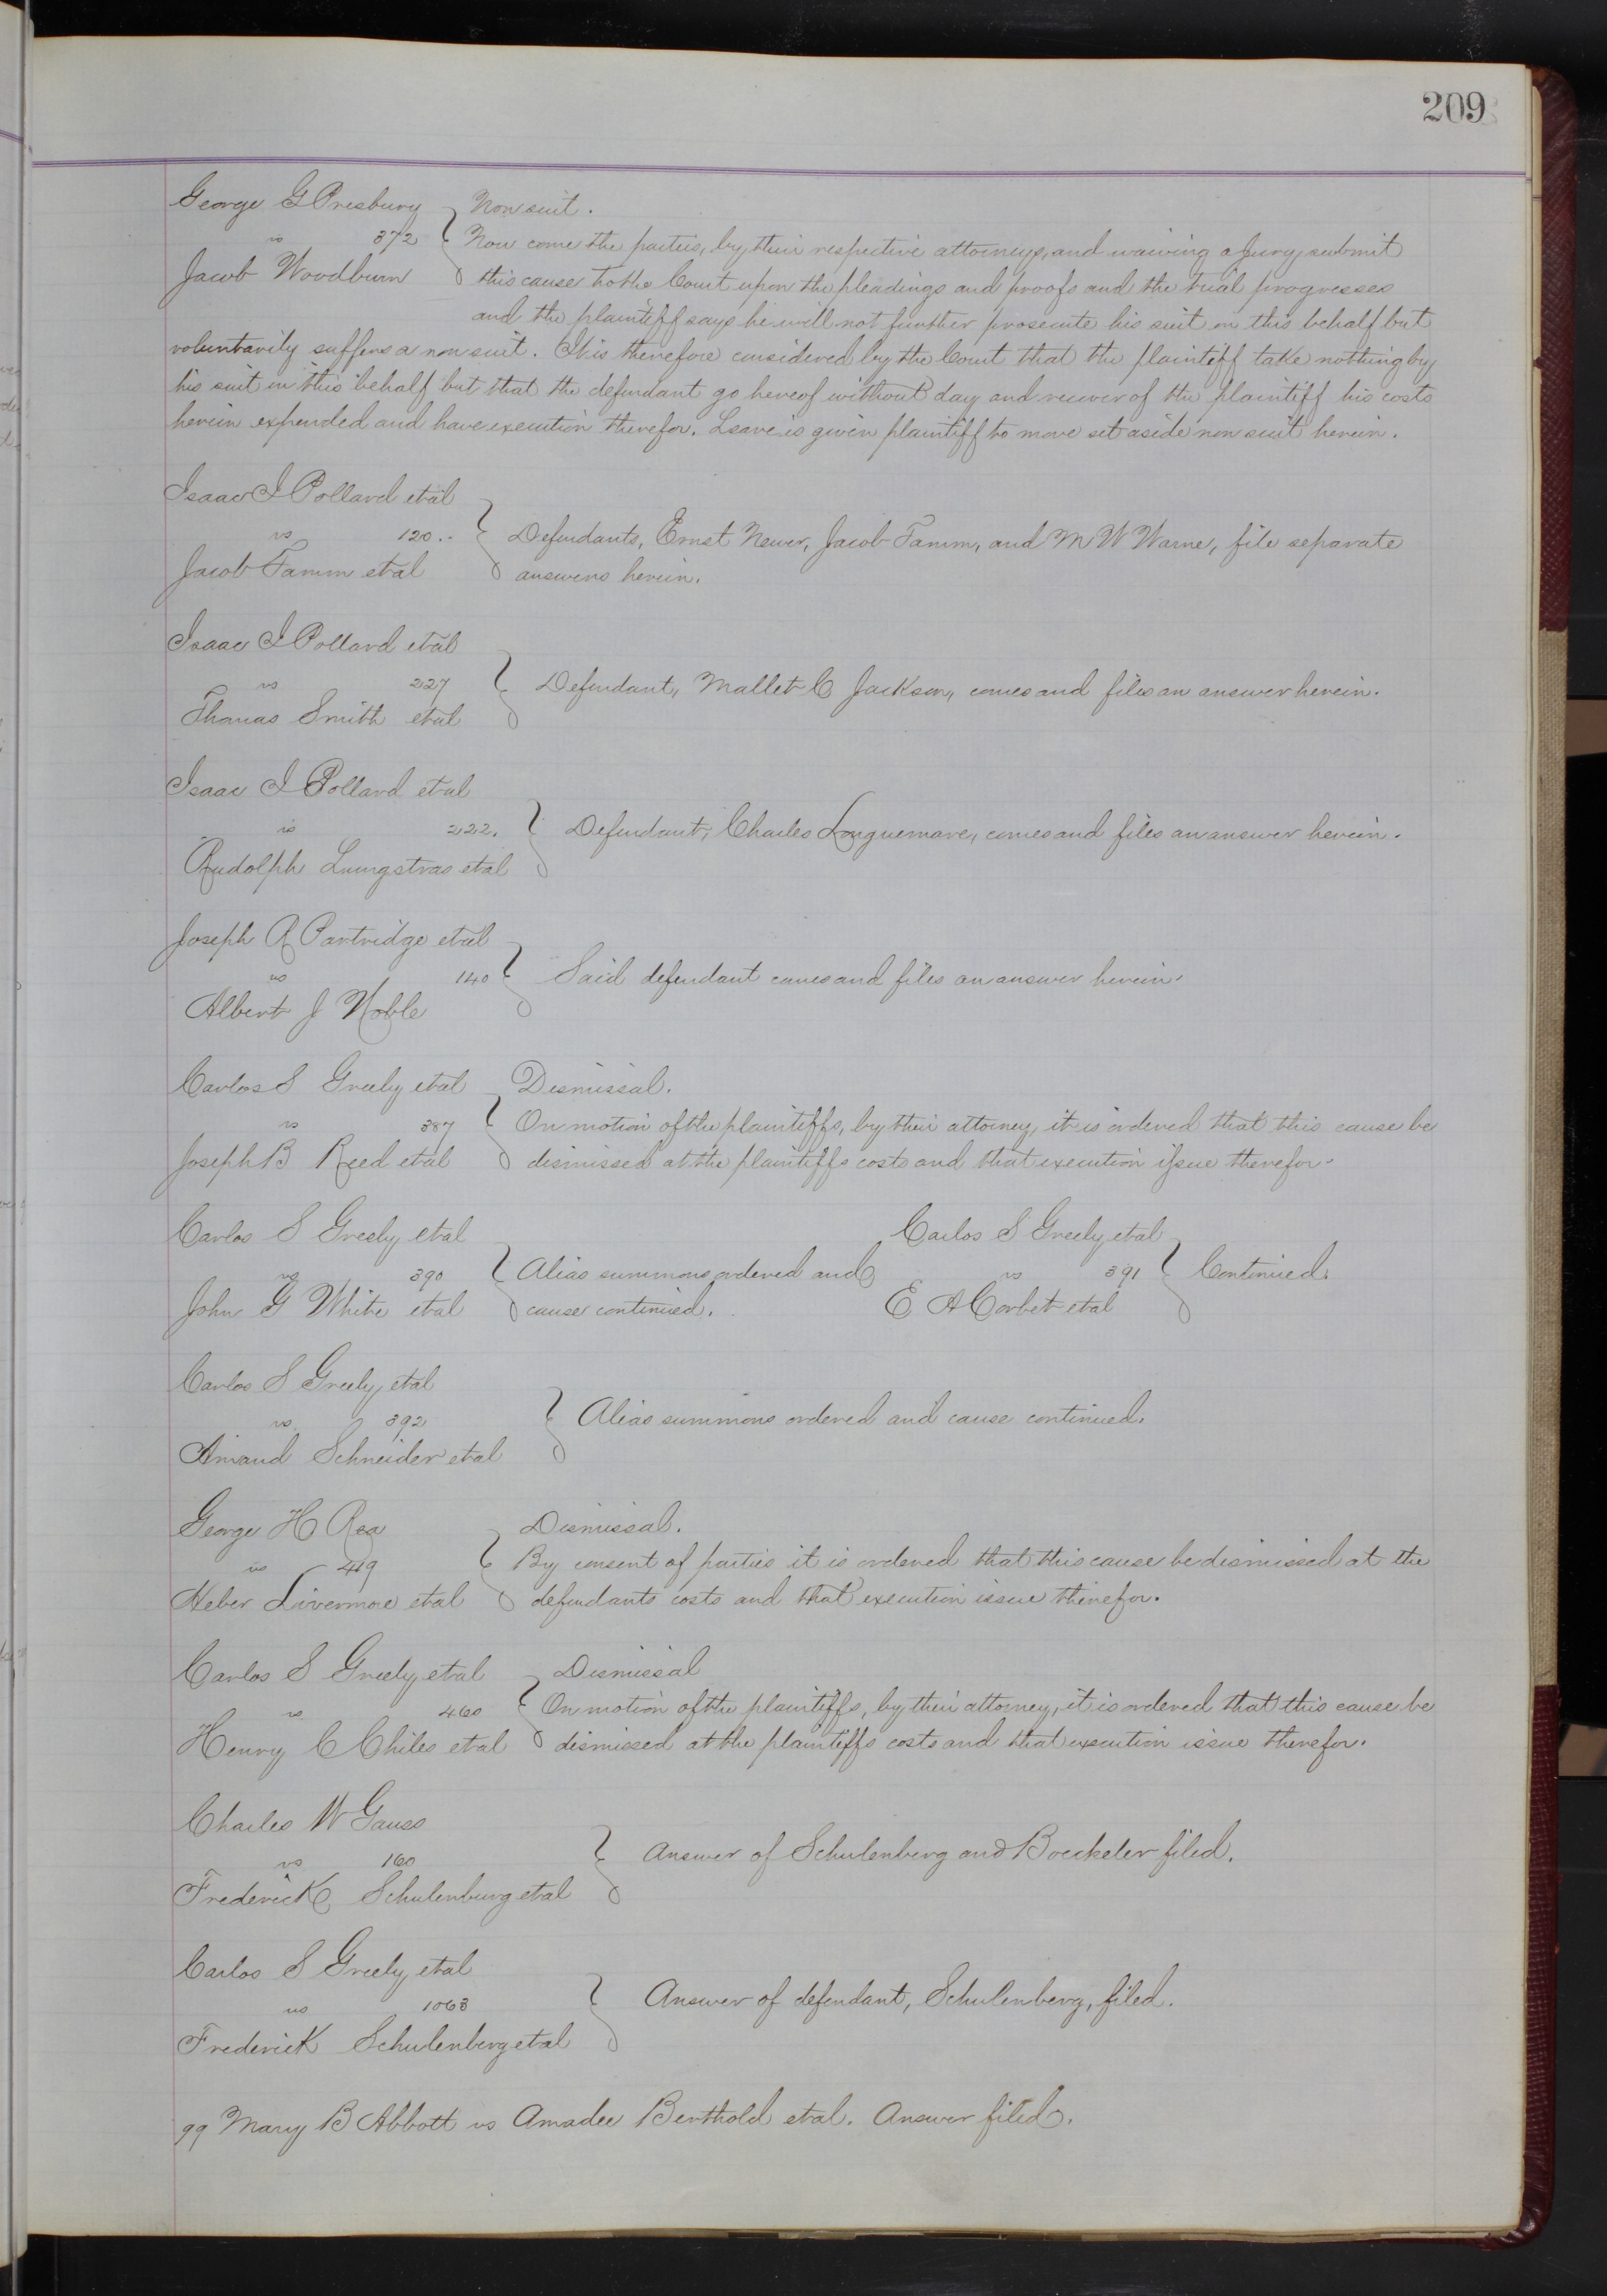 209
George G Presbury } Non suit.
vs 372 Now come the parties, by their respective attorneys, and waiving a Jury, submit
Jacob Woodburn this cause to the Court upon the pleadings and proofs and the trial progresses
and the plaintiff says he will not further prosecute his suit in this behalf but
voluntarily suffers a non suit. It is therefore considered by the Court that the plaintiff take nothing by
his suit in this behalf, but that the defendant go hereof without day and recover of the plaintiff his costs
herein expended and have execution therefor. Leave is given plaintiff to move set aside non suit herein.
Isaac I Pollard et al
vs 120.. } Defendants, Ernst Newer, Jacob Tamm, and M W Warne, file separate
Jacob Tamm et al answers herein.
Isaac I Pollard et al
vs 227 } Defendant, Mallet C Jackson, comes and files an answer herein.
Thomas Smith et al
Isaac I Pollard et al
vs 222. } Defendant, Charles Longuemare, comes and files an answer herein.
Rudolph Lungstras et al
Joseph A Partridge et al
vs 140 } Said defendant comes and files an answer herein.
Albert J Noble
Carlos S Greely et al } Dismissal.
vs 387 On motion of the plaintiffs, by their attorney, it is ordered that this cause be
Joseph B Reed et al dismissed at the plaintiffs costs and that execution issue therefor.
Carlos S Greely et al
vs 390 } Alias summons ordered and
John G White et al cause continued.
Carlos S Greely et al
vs 391 } Continued.
E A Corbet et al
Carlos S Greely et al
vs. 392 } Alias summons ordered and cause continued.
Amand Schneider et al
George H Rea } Dismissal.
vs 419 By consent of parties it is ordered that this cause be dismissed at the
Heber Livermore et al defendants costs and that execution issue therefor.
Carlos S Greely et al } Dismissal
vs 460 On motion of the plaintiffs, by their attorney, it is ordered that this cause be
Henry C Chiles et al dismissed at the plaintiffs costs and that execution issue therefor.
Charles W Gauss
vs 160 } Answer of Schulenberg and Boeckeler filed.
Frederick Schulenburg et al
Carlos S Greely et al
vs 1068 } Answer of defendant, Schulenberg, filed.
Frederick Schulenberg et al
99 Mary B Abbott vs Amadee Berthold et al. Answer filed.